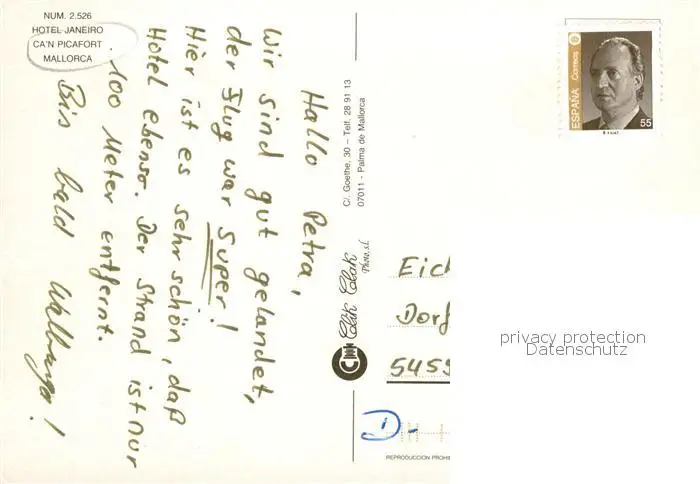 NUM. 2.526
HOTEL JANEIRO
CA'N PICAFORT
MALLORCA
Hallo Petra,
Wir sind gut gelandet,
der Flug war Super!
Hier ist es sehr schön, daß
Hotel ebenso. Der Strand ist nur
100 Meter entfernt.
Bis bald Walburga!
C/. Goethe, 30 - Telf. 28 91 13
07011 - Palma de Mallorca
Clik Clak
Photo, s.l.
ESPAÑA Correos
55
Eich
Dorf
5455
D-
REPRODUCCION PROHIB
privacy protection
Datenschutz